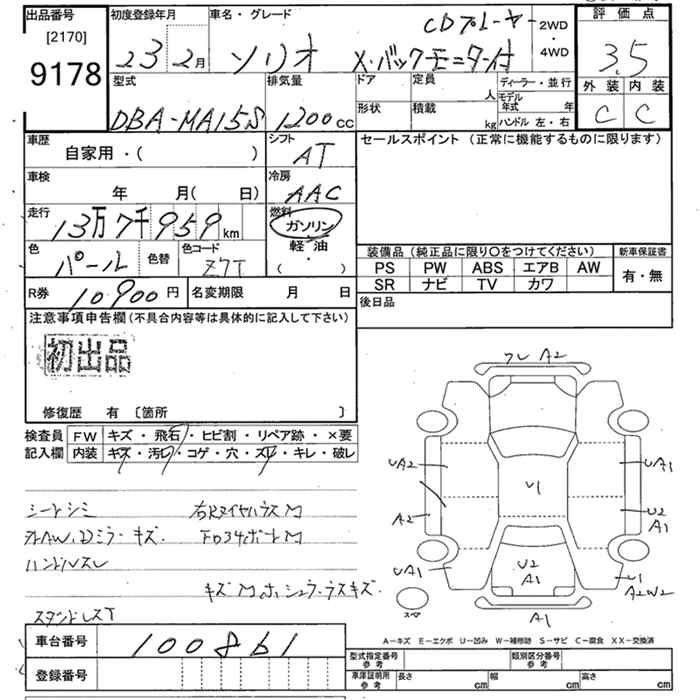 出品番号 [2170] 9178
初度登録年月 23 2月
車名・グレード ソリオ X・バックモニター付 CDプレーヤー
2WD・4WD
評価点 3.5
外装 内装
C C
型式 DBA-MA15S
排気量 1200cc
ドア 定員 人
形状 積載 kg
ディーラー・並行
モデル年式 年
ハンドル 左・右
車歴 自家用・( )
シフト AT
セールスポイント (正常に機能するものに限ります)
車検 年 月( 日)
冷房 AAC
走行 13万7千959km
燃料 ガソリン・軽油 ( ・ )
色 パール 色替 色コード Z7T
装備品(純正品に限り○をつけてください) 新車保証書
PS PW ABS エアB AW 有・無
SR ナビ TV カワ
R券 10900円 名変期限 月 日
後日品
注意事項申告欄(不具合内容等は具体的に記入して下さい)
初出品
修復歴 有 〔箇所 〕
検査員 FW キズ・飛石・ヒビ割・リペア跡・×要
記入欄 内装 キズ・汚レ・コゲ・穴・スレ・キレ・破レ
シートシミ 右Rタイヤハウス M
ハンドルスレ
フレ A2
UA2 UA1
U1
A2 U2 A1
UA1 U2 A1 U1 A2W2
A1
スペ
車台番号 100861
登録番号
A-キズ E-エクボ U-凹み W-補修跡 S-サビ C-腐食 XX-交換済
型式指定番号 参考 類別区分番号 参考
車庫証明所 参考 長さ cm 幅 cm 高さ cm